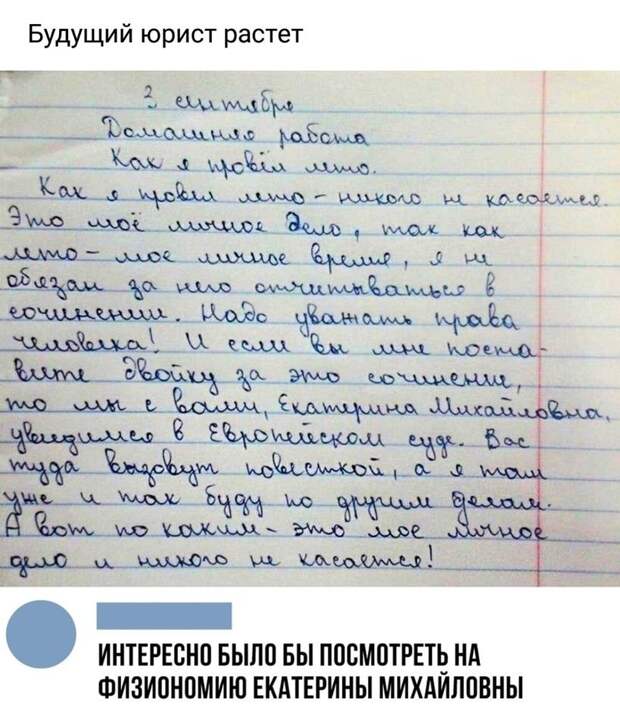 Будущий юрист растет
3 сентября
Домашняя работа
Как я провёл лето.
Как я провел лето – никого не касается.
Это моё личное дело, так как
лето – мое личное время, я не
обязан за него отчитываться в
сочинении. Надо уважать права
человека! И если вы мне поста-
вите двойку за это сочинение,
то мы с вами, Екатерина Михайловна,
увидимся в Европейском суде. Вас
туда вызовут повесткой, а я там
уже и так буду по другим делам.
А вот по каким – это мое личное
дело и никого не касается!
ИНТЕРЕСНО БЫЛО БЫ ПОСМОТРЕТЬ НА
ФИЗИОНОМИЮ ЕКАТЕРИНЫ МИХАЙЛОВНЫ